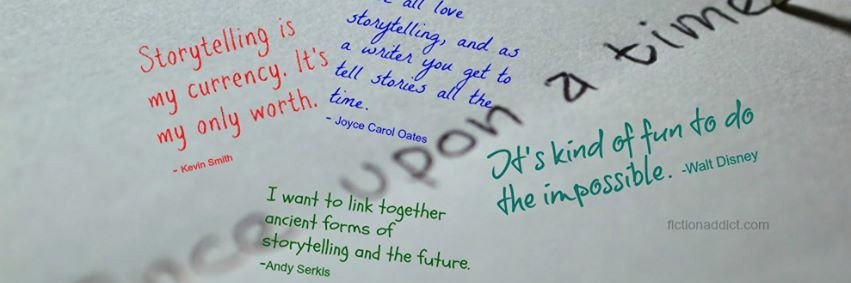 Storytelling is
my currency. It's
my only worth.
- Kevin Smith
all love
storytelling, and as
a writer you get to
tell stories all the
time.
- Joyce Carol Oates
Once upon a time
It's kind of fun to do
the impossible. -Walt Disney
I want to link together
ancient forms of
storytelling and the future.
-Andy Serkis
fictionaddict.com